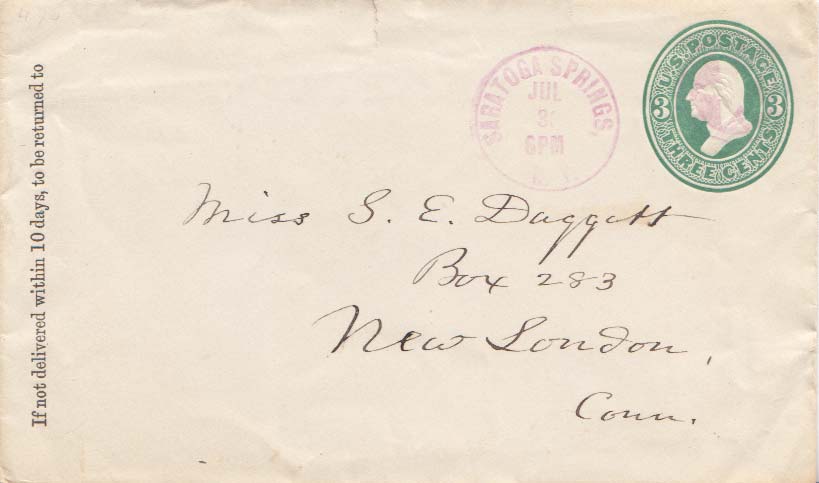 If not delivered within 10 days, to be returned to
SARATOGA SPRINGS,
JUL
6PM
N.Y.
U.S. POSTAGE
3 3
THREE CENTS
Miss S. E. Daggett
Box 283
New London,
Conn.